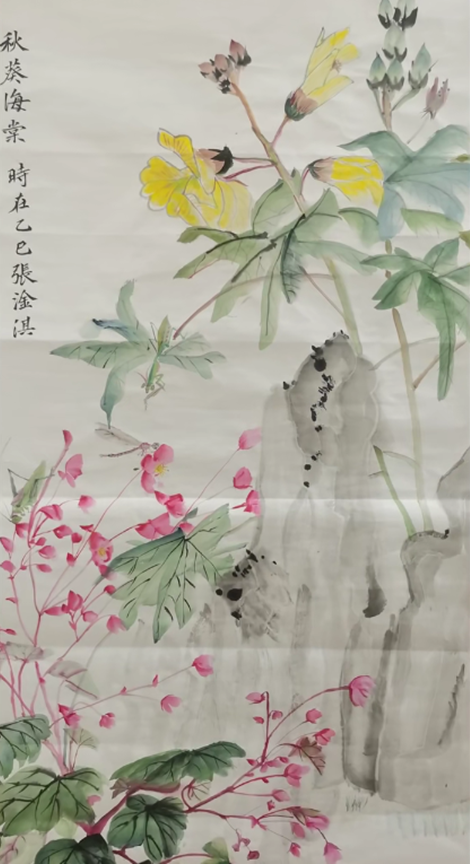 秋葵海棠 時在乙巳張淦淇